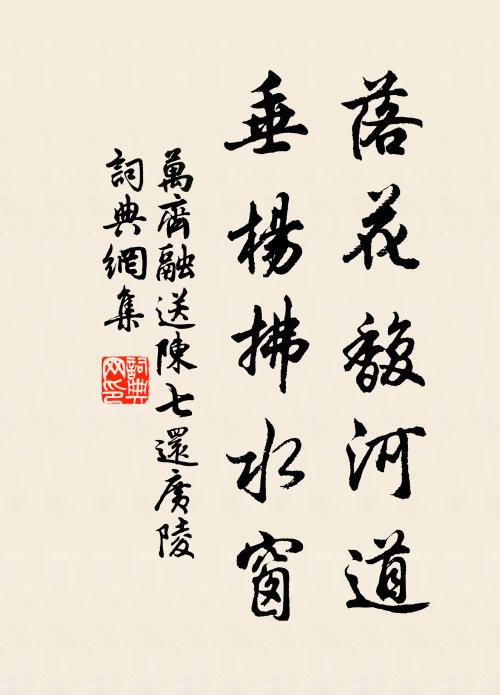 落花馥河道
垂楊拂水窗
萬齊融送陳七還廣陵
詞典網集
詞典
网印